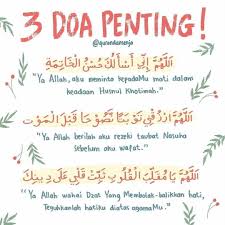 3 DOA PENTING!
@qurandansenja
اَللّٰهُمَّ إِنِّي أَسْأَلُكَ حُسْنَ الْخَاتِمَةِ
"Ya Allah, aku meminta kepadaMu mati dalam
keadaan Husnul Khotimah."
اَللّٰهُمَّ ارْزُقْنِي تَوْبَةً نَصُوحًا قَبْلَ الْمَوْتِ
"Ya Allah berilah aku rezeki taubat Nasuha
sebelum aku wafat."
اَللّٰهُمَّ يَا مُقَلِّبَ الْقُلُوبِ ثَبِّتْ قَلْبِي عَلَى دِينِكَ
"Ya Allah wahai Dzat Yang Membolak-balikkan hati,
Teguhkanlah hatiku diatas agamaMu."